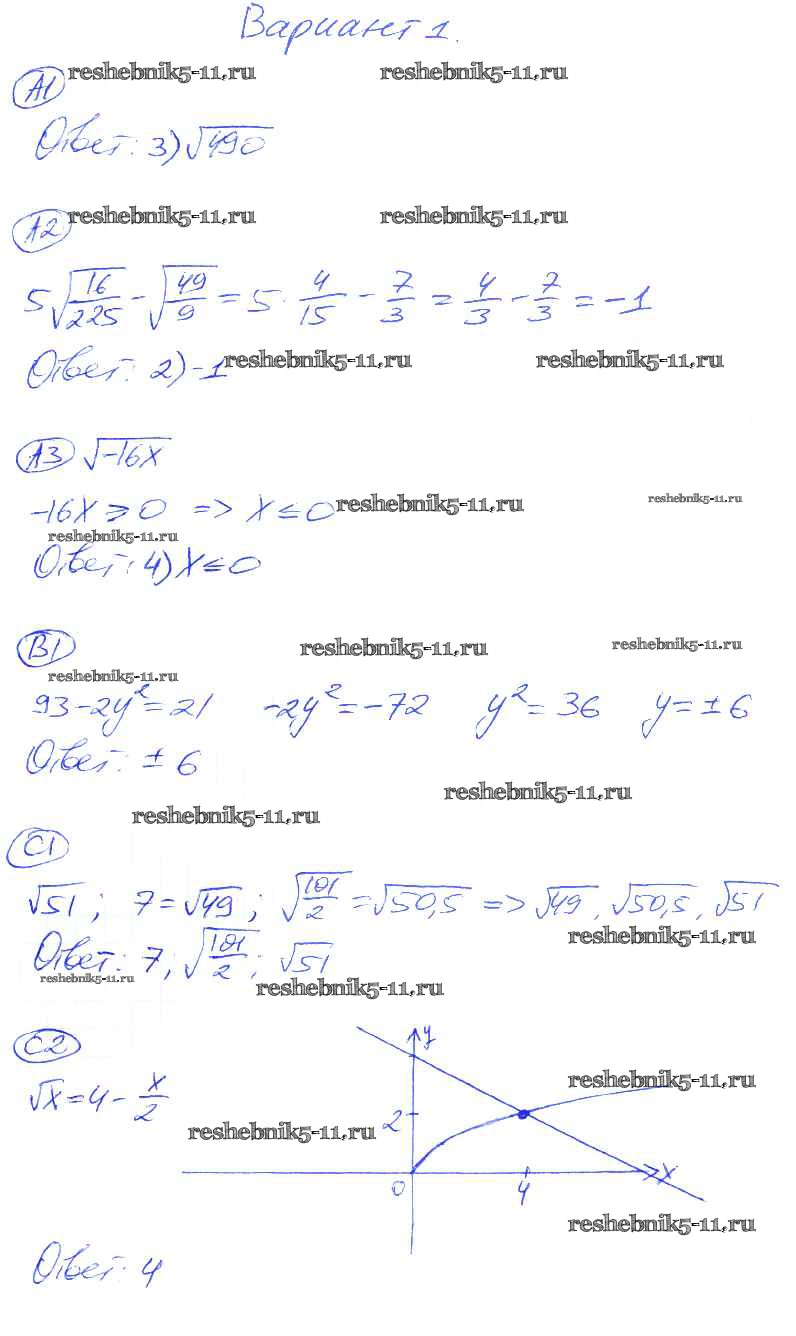 Вариант 1.
reshebnik5-11.ru reshebnik5-11.ru
А1
Ответ: 3) √490
reshebnik5-11.ru reshebnik5-11.ru
А2
5√(16/225) - √(49/9) = 5 · 4/15 - 7/3 = 4/3 - 7/3 = -1
Ответ: 2) -1 reshebnik5-11.ru reshebnik5-11.ru
А3 √-16x
-16x ≥ 0 => x ≤ 0 reshebnik5-11.ru reshebnik5-11.ru
reshebnik5-11.ru
Ответ: 4) x ≤ 0
В1 reshebnik5-11.ru reshebnik5-11.ru
reshebnik5-11.ru
93 - 2y² = 21 -2y² = -72 y² = 36 y = ± 6
Ответ: ± 6
reshebnik5-11.ru
reshebnik5-11.ru
С1
√51; 7 = √49; √(101/2) = √50,5 => √49, √50,5, √51
reshebnik5-11.ru
Ответ: 7; √(101/2); √51
reshebnik5-11.ru reshebnik5-11.ru
С2
y
√x = 4 - x/2 reshebnik5-11.ru
2
reshebnik5-11.ru
x
0 4
reshebnik5-11.ru
Ответ: 4